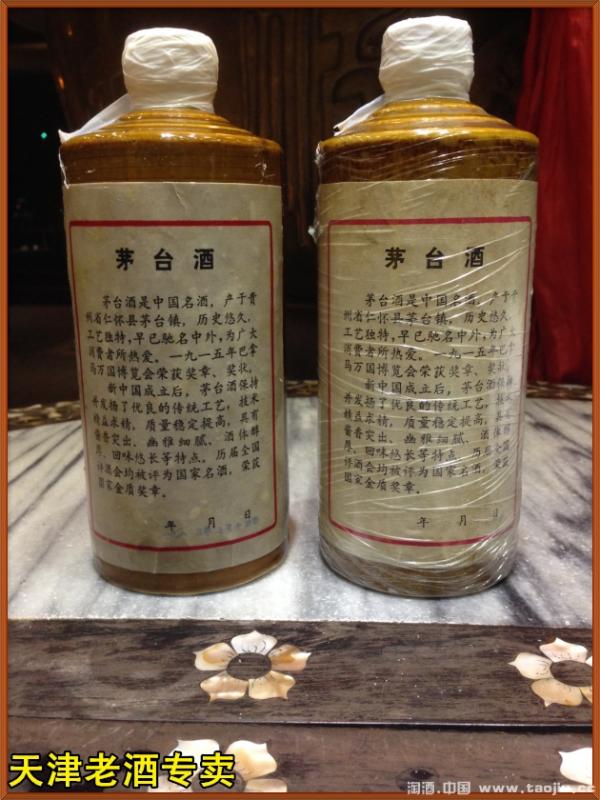 茅台酒
茅台酒是中国名酒，产于贵
州省仁怀县茅台镇，历史悠久，
工艺独特，早已驰名中外，为广大
消费者所热爱。一九一五年巴拿
马万国博览会荣获奖章、奖状。
新中国成立后，茅台酒保持
并发扬了优良的传统工艺，技术
精益求精，质量稳定提高，具有
酱香突出、幽雅细腻、酒体醇
厚、回味悠长等特点。历届全国
评酒会均被评为国家名酒，荣获
国家金质奖章。
年 月 日
茅台酒
茅台酒是中国名酒，产于贵
州省仁怀县茅台镇，历史悠久，
工艺独特，早已驰名中外，为广大
消费者所热爱。一九一五年巴拿
马万国博览会荣获奖章、奖状。
新中国成立后，茅台酒保持
并发扬了优良的传统工艺，技术
精益求精，质量稳定提高，具有
酱香突出、幽雅细腻、酒体醇
厚、回味悠长等特点。历届全国
评酒会均被评为国家名酒，荣获
国家金质奖章。
年 月 日
天津老酒专卖
淘酒.中国 www.taojw.cc